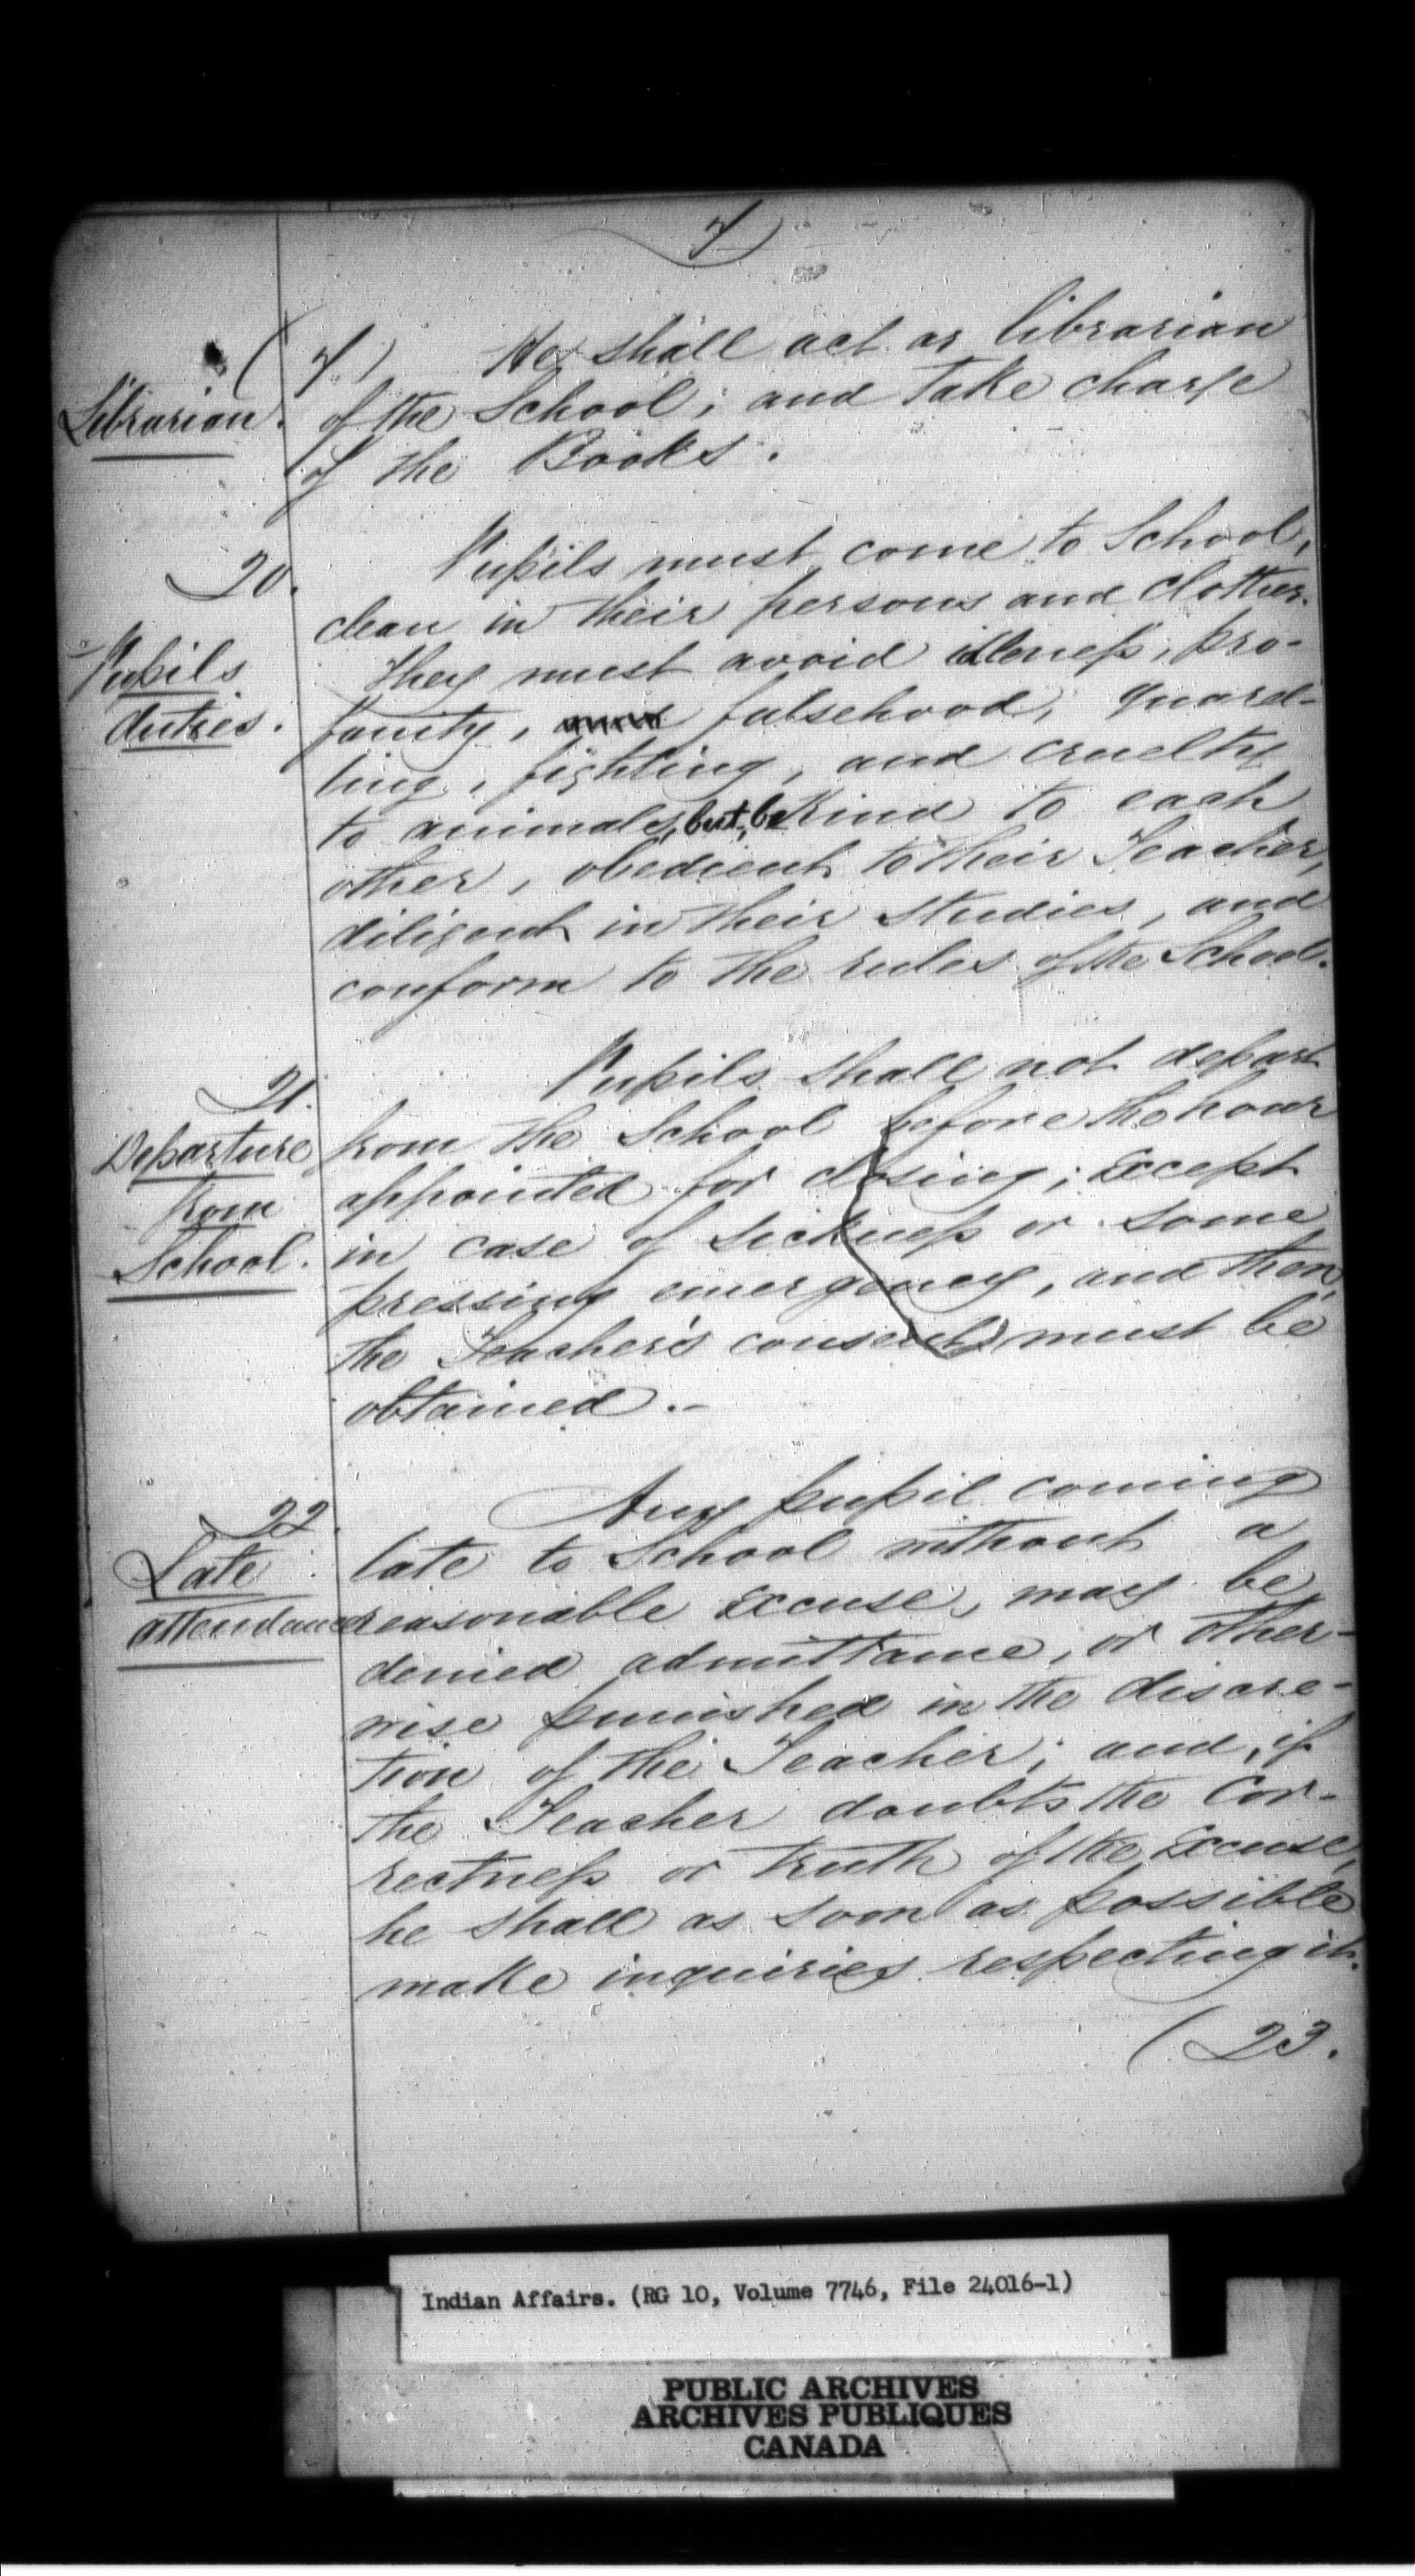 7)
(7) He shall act as librarian
Librarian. of the School; and take charge
of the Books.
20. Pupils must come to School,
clean in their persons and clothes.
Pupils They must avoid idleness, pro-
duties. fanity, falsehood, quarel-
ling, fighting, and cruelty
to animals, but, be kind to each
other, obedient to their Teacher,
diligent in their studies, and
conform to the rules of the School.
21. Pupils shall not depart
Departure from the School before the hour
from appointed for closing; except
School. in case of sickness or some
pressing emergency, and then,
the Teacher's consent must be
obtained.-
22. Any pupil coming
Late late to School without a
attendance reasonable excuse, may be
denied admittance, or other-
wise punished in the discre-
tion of the Teacher; and, if
the Teacher doubts the cor-
rectness or truth of the excuse,
he shall as soon as possible
make inquiries respecting it.
(23.
Indian Affairs. (RG 10, Volume 7746, File 24016-1)
PUBLIC ARCHIVES
ARCHIVES PUBLIQUES
CANADA